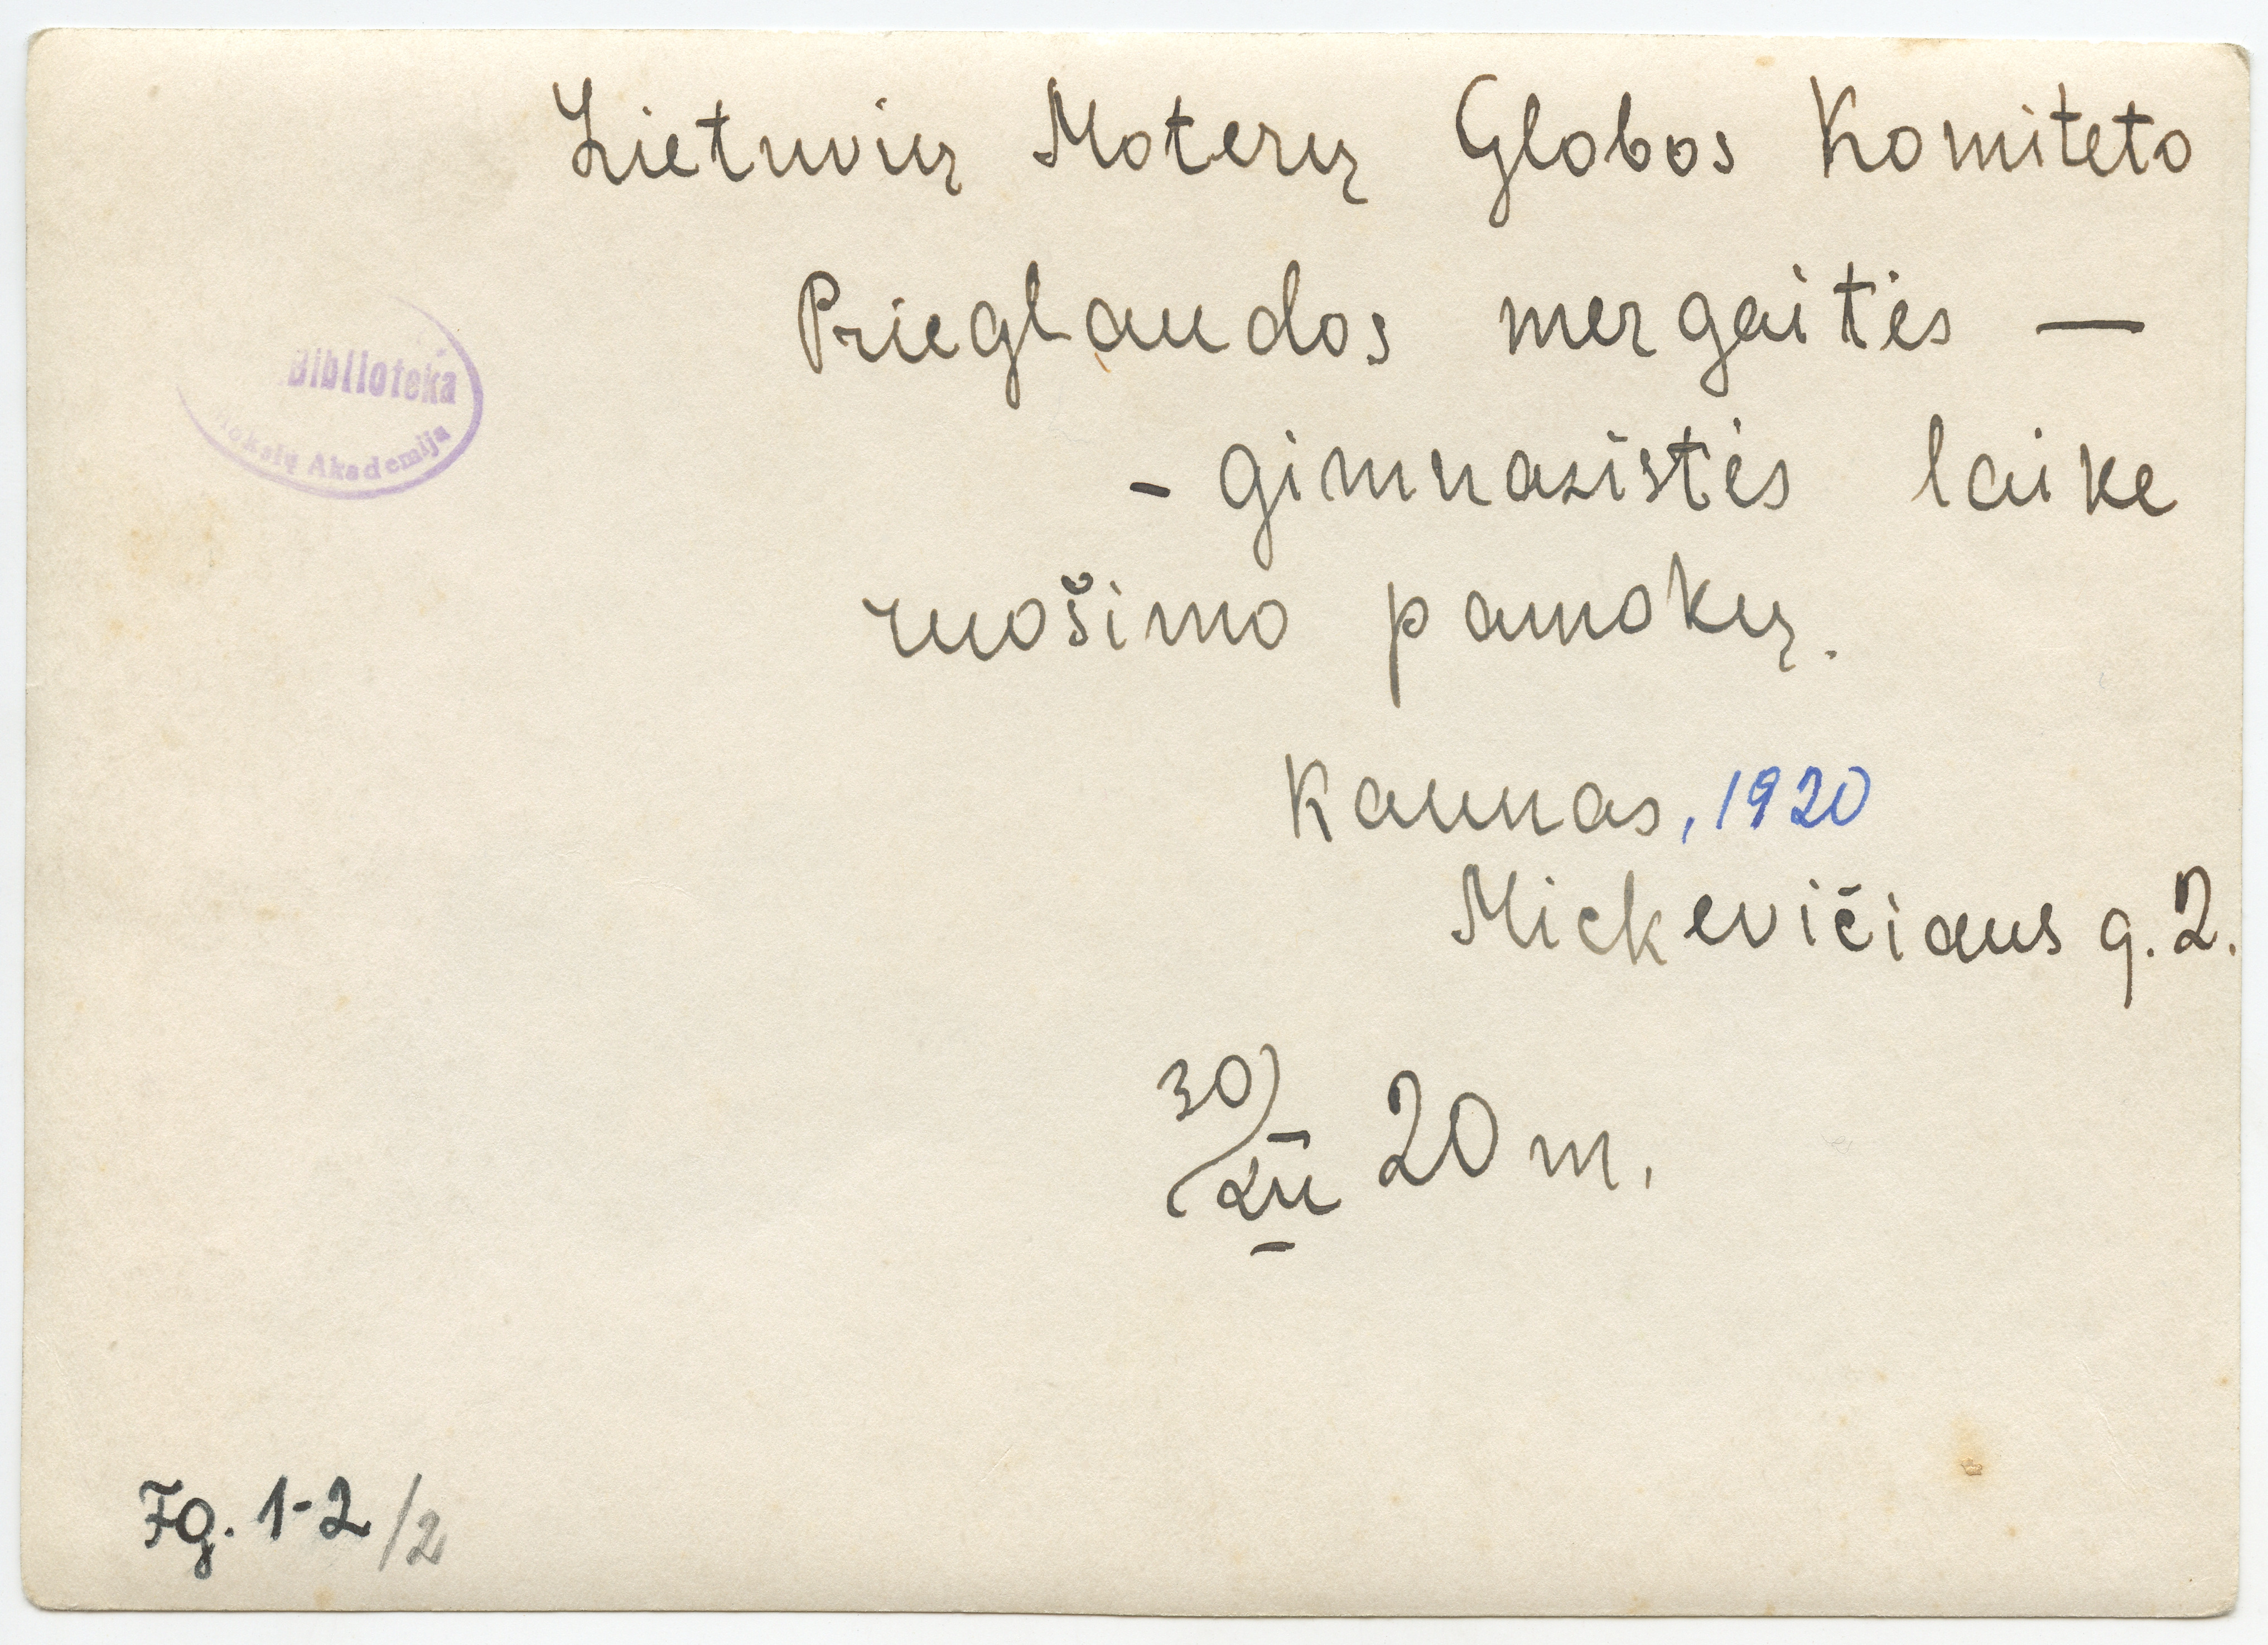 Lietuvių Moterų Globos Komiteto
Prieglaudos mergaitės —
- gimnazistės laike
ruošimo pamokų.
Kaunas, 1920
Mickevičiaus g. 2.
30/XII 20 m.
Biblioteka
Mokslų Akademija
Fg. 1-2/2